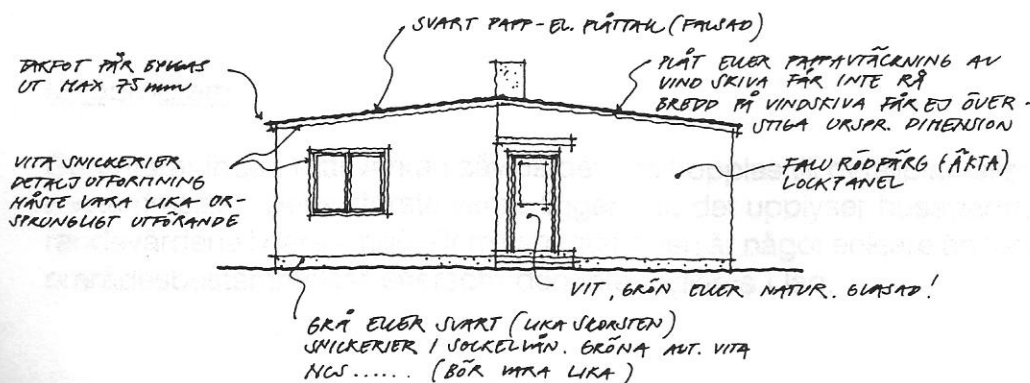 SVART PAPP- EL. PLÅTTAK (FALSAD)
TAKFOT FÅR BYGGAS
UT MAX 75 mm
PLÅT ELLER PAPPAVTÄCKNING AV
VINDSKIVA FÅR INTE RÅ
BREDD PÅ VINDSKIVA FÅR EJ ÖVER-
STIGA URSPR. DIMENSION
VITA SNICKERIER
DETALJUTFORMNING
MÅSTE VARA LIKA OR-
SPRUNGLIGT UTFÖRANDE
FALU RÖDFÄRG (ÄKTA)
LOCKPANEL
VIT, GRÖN ELLER NATUR. GLASAD!
GRÅ ELLER SVART (LIKA SKORSTEN)
SNICKERIER I SOCKELVÅN. GRÖNA ALT. VITA
NCS ...... (BÖR VARA LIKA)